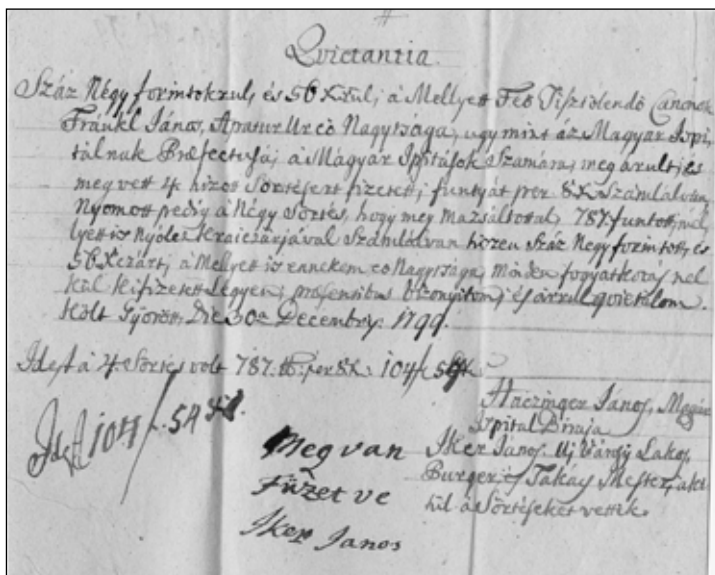 Qvietantia
Száz Négy forintokrul, és 56 Xrul, á Mellyett Feö Tisztolendö Canonok
Fránkl János, Apatur Ur eö Nagysága, ugy mint áz Magyar Ispi,
tálnak Præfectusa, á Mágyar Ispitások Szamára, meg árult, és
meg vett 4 hizott Sörtésert fizetett, funtyát per 8X Számlálván,
Nyomott pedig á Négy Sörtés, hogy meg Mazsáltottal, 787 funtott, mel,
lyett is Nyólcz Kraiczárjával Számlálvan hiszen Száz Negy forintott, és
56 Xczárt, á Mellyet is ennekem eö Nagysága, minden fogyatkozás nel
kül ki fizetett légyen, præsentibus bizonyitom, és árrul quietalom.
Költ Györött, Die 30a Decembris 1799.
Idest á 4. Sörtés volt 787. per 8X: 104f
Idest 104f. 54
Haczinger János, Magár
Ispital Biraja
Iker János Uj Városy Lakos,
Burger és Takács Mester, aki
tül á Sörtéseket vették.
Meg van
Füzet ve
Iker Janos